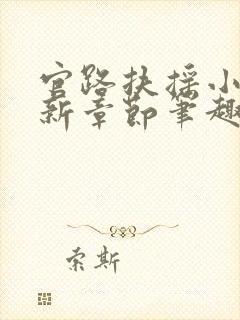 官路扶摇小
新章节笔趣
索斯